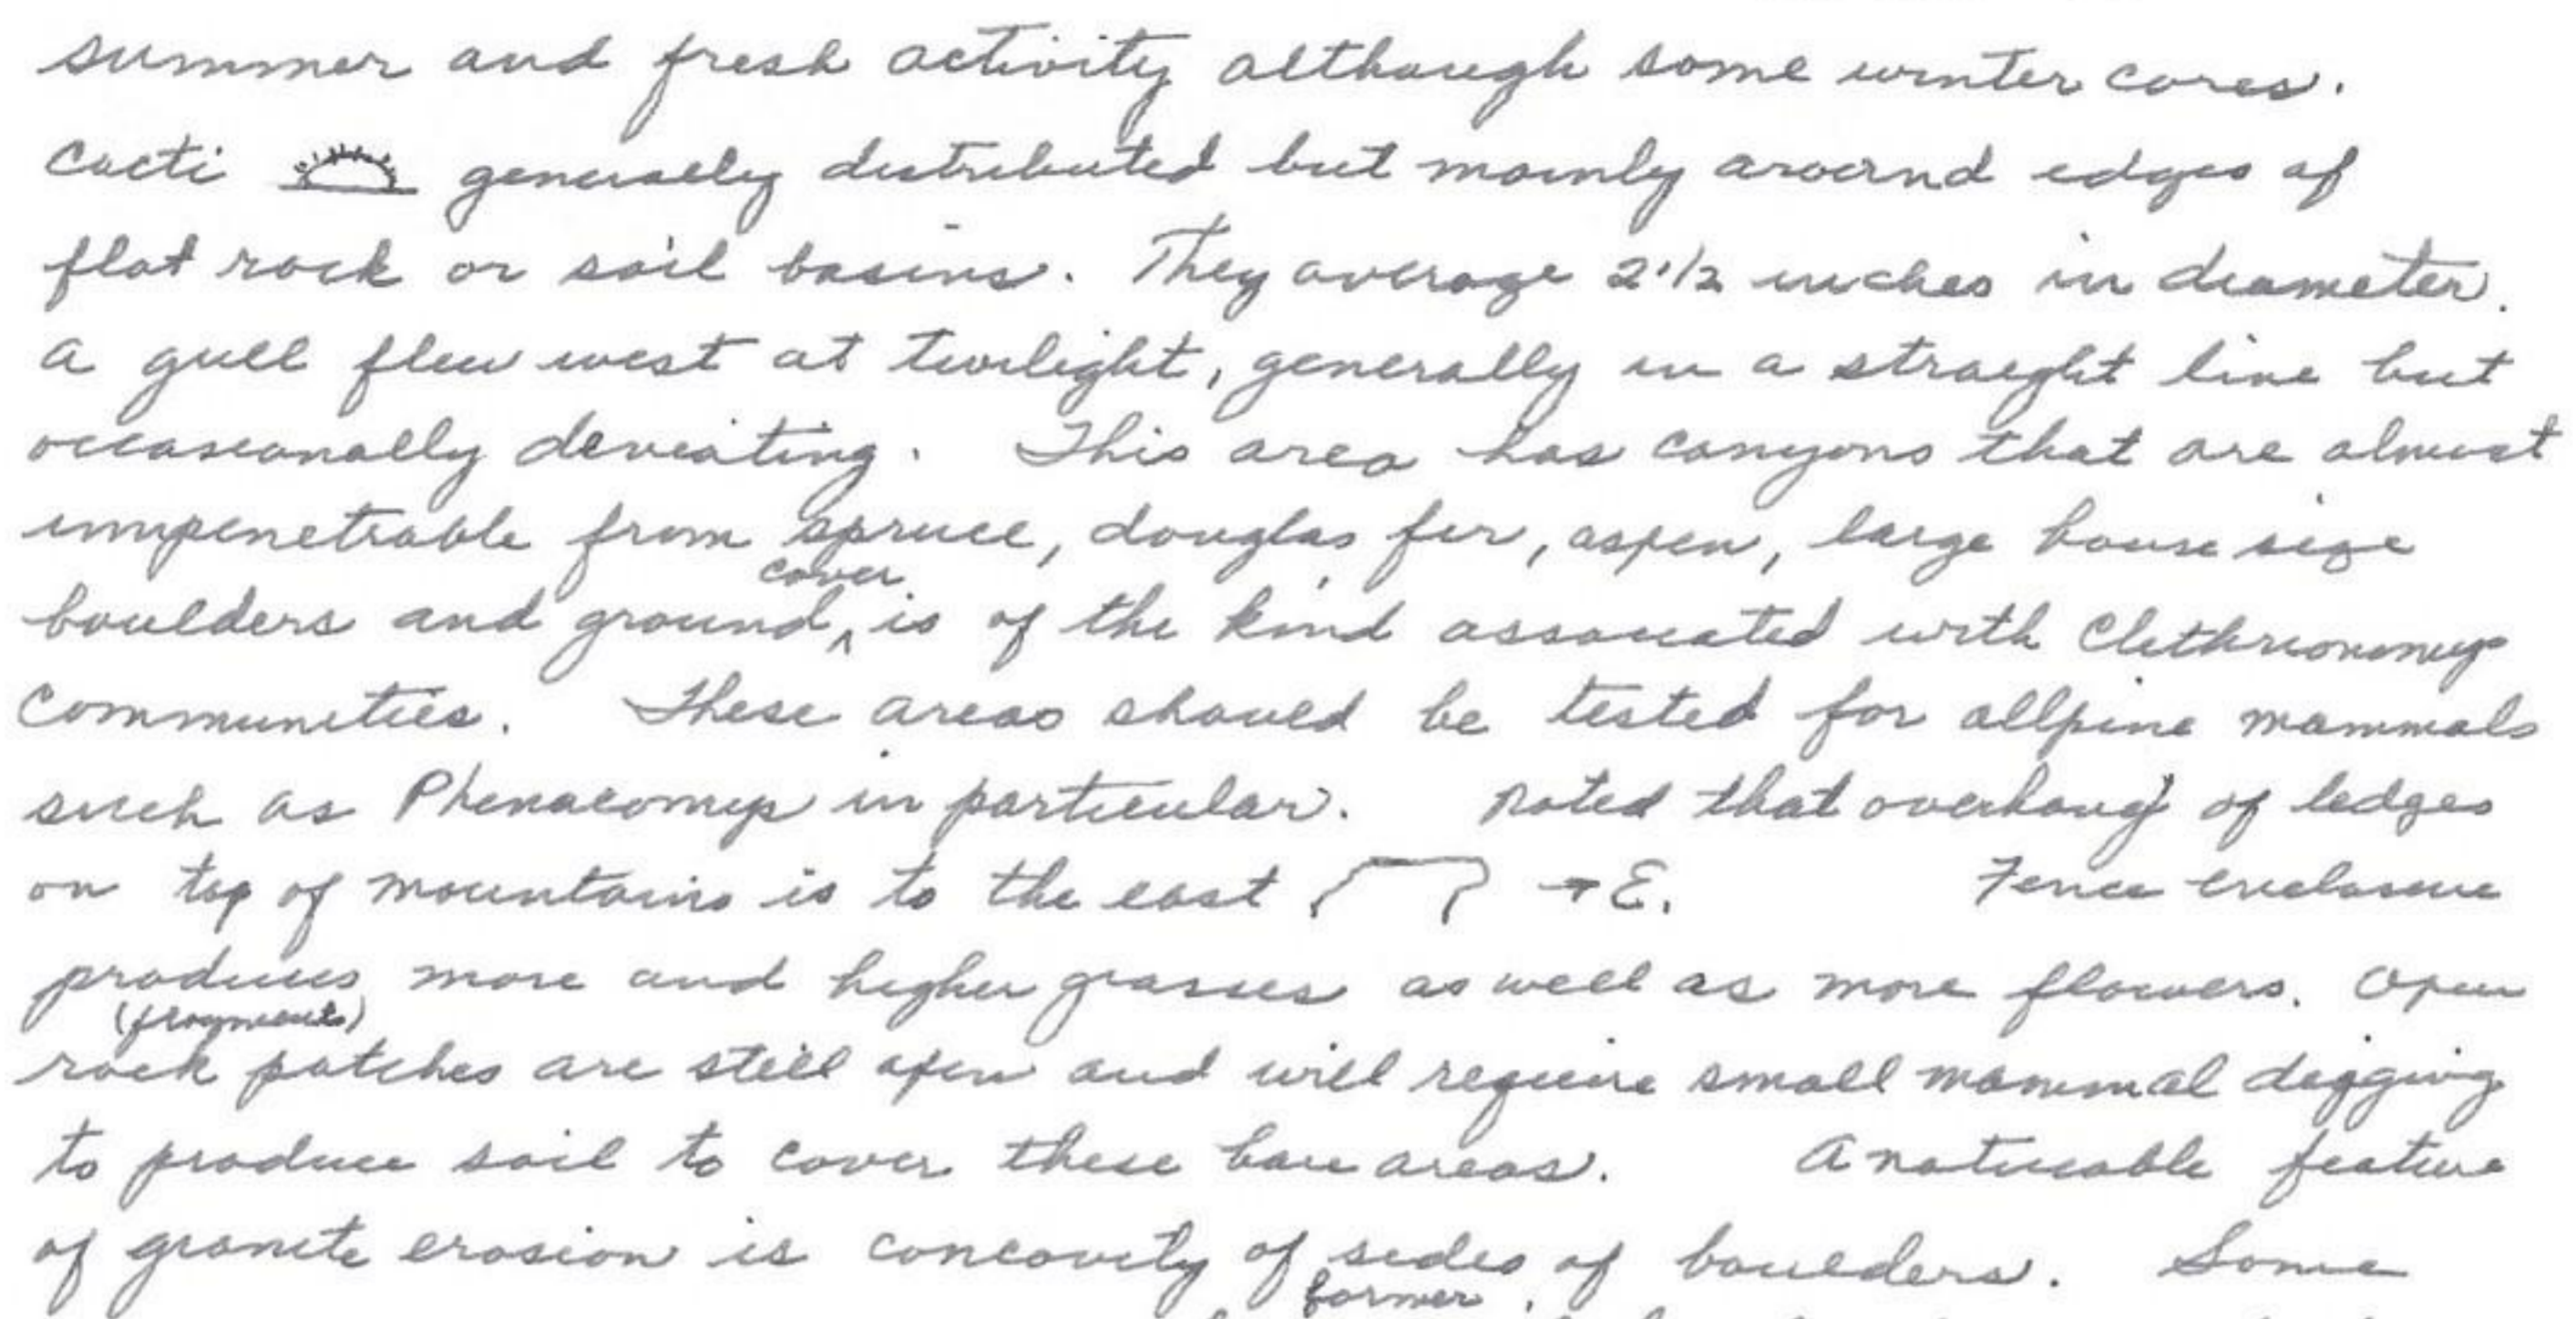 summer and fresh activity although some winter cores.
Cacti generally distributed but mainly around edges of
flat rock or soil basins. They average 2 1/2 inches in diameter.
A gull flew west at twilight, generally in a straight line but
occasionally deviating. This area has canyons that are almost
impenetrable from spruce, douglas fir, aspen, large house size
cover
boulders and ground ^ is of the kind associated with Clethrionomys
communities. These areas should be tested for allpine mammals
such as Phenacomys in particular. Noted that overhang of ledges
on top of mountains is to the east → E. Fence enclosure
produces more and higher grasses as well as more flowers. Open
(fragments)
rock patches are still open and will require small mammal digging
to produce soil to cover these bare areas. A noticable feature
of granite erosion is concavity of sides of boulders. Some
former